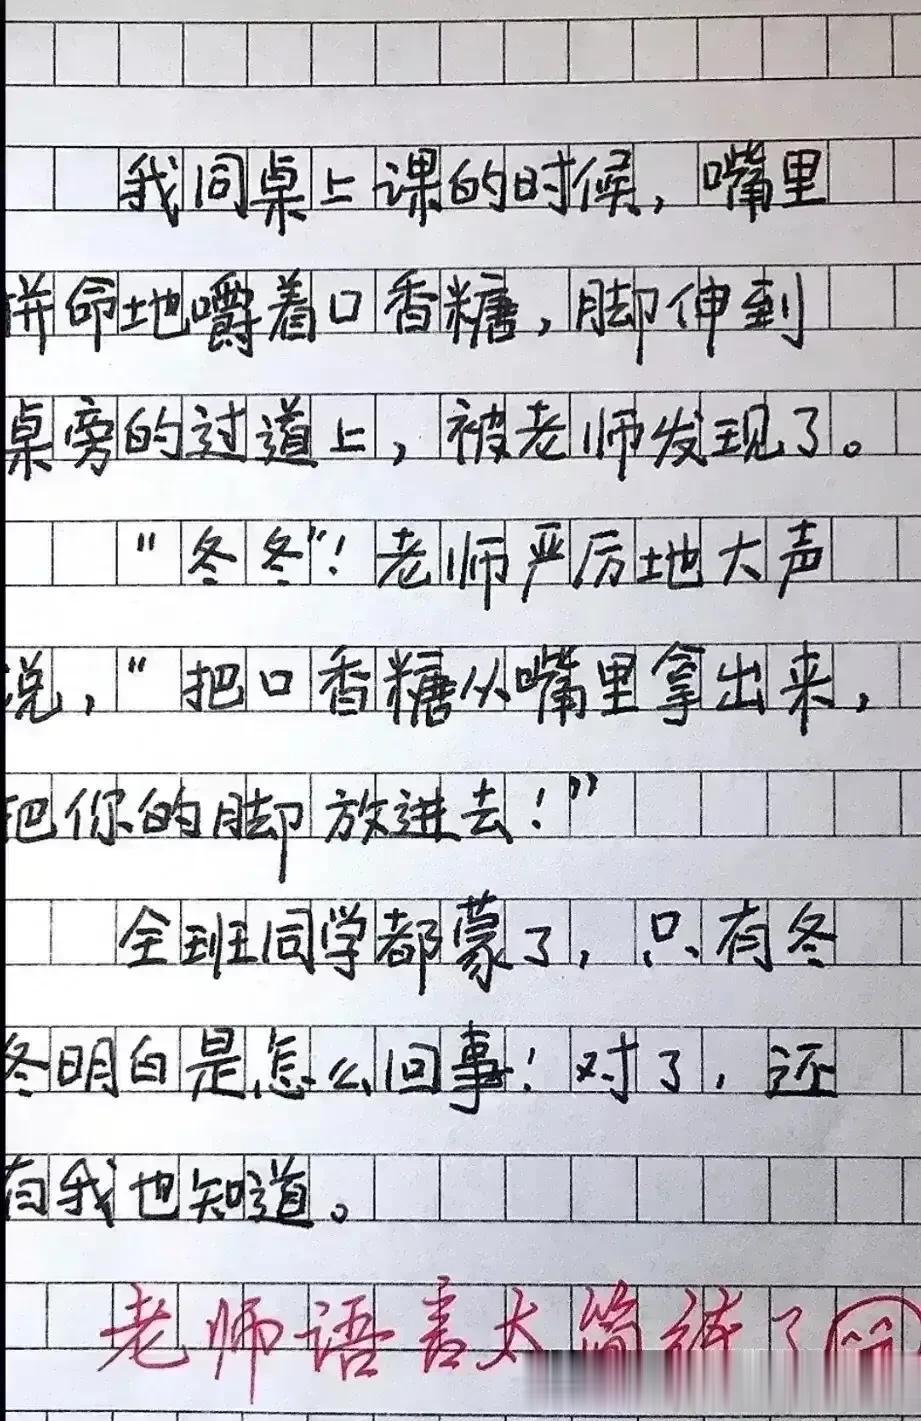 我同桌上课的时候，嘴里
拼命地嚼着口香糖，脚伸到
桌旁的过道上，被老师发现了。
“冬冬”！老师严厉地大声
说，“把口香糖从嘴里拿出来，
把你的脚放进去！”
全班同学都蒙了，只有冬
冬明白是怎么回事！对了，还
有我也知道。
老师语言太简练了